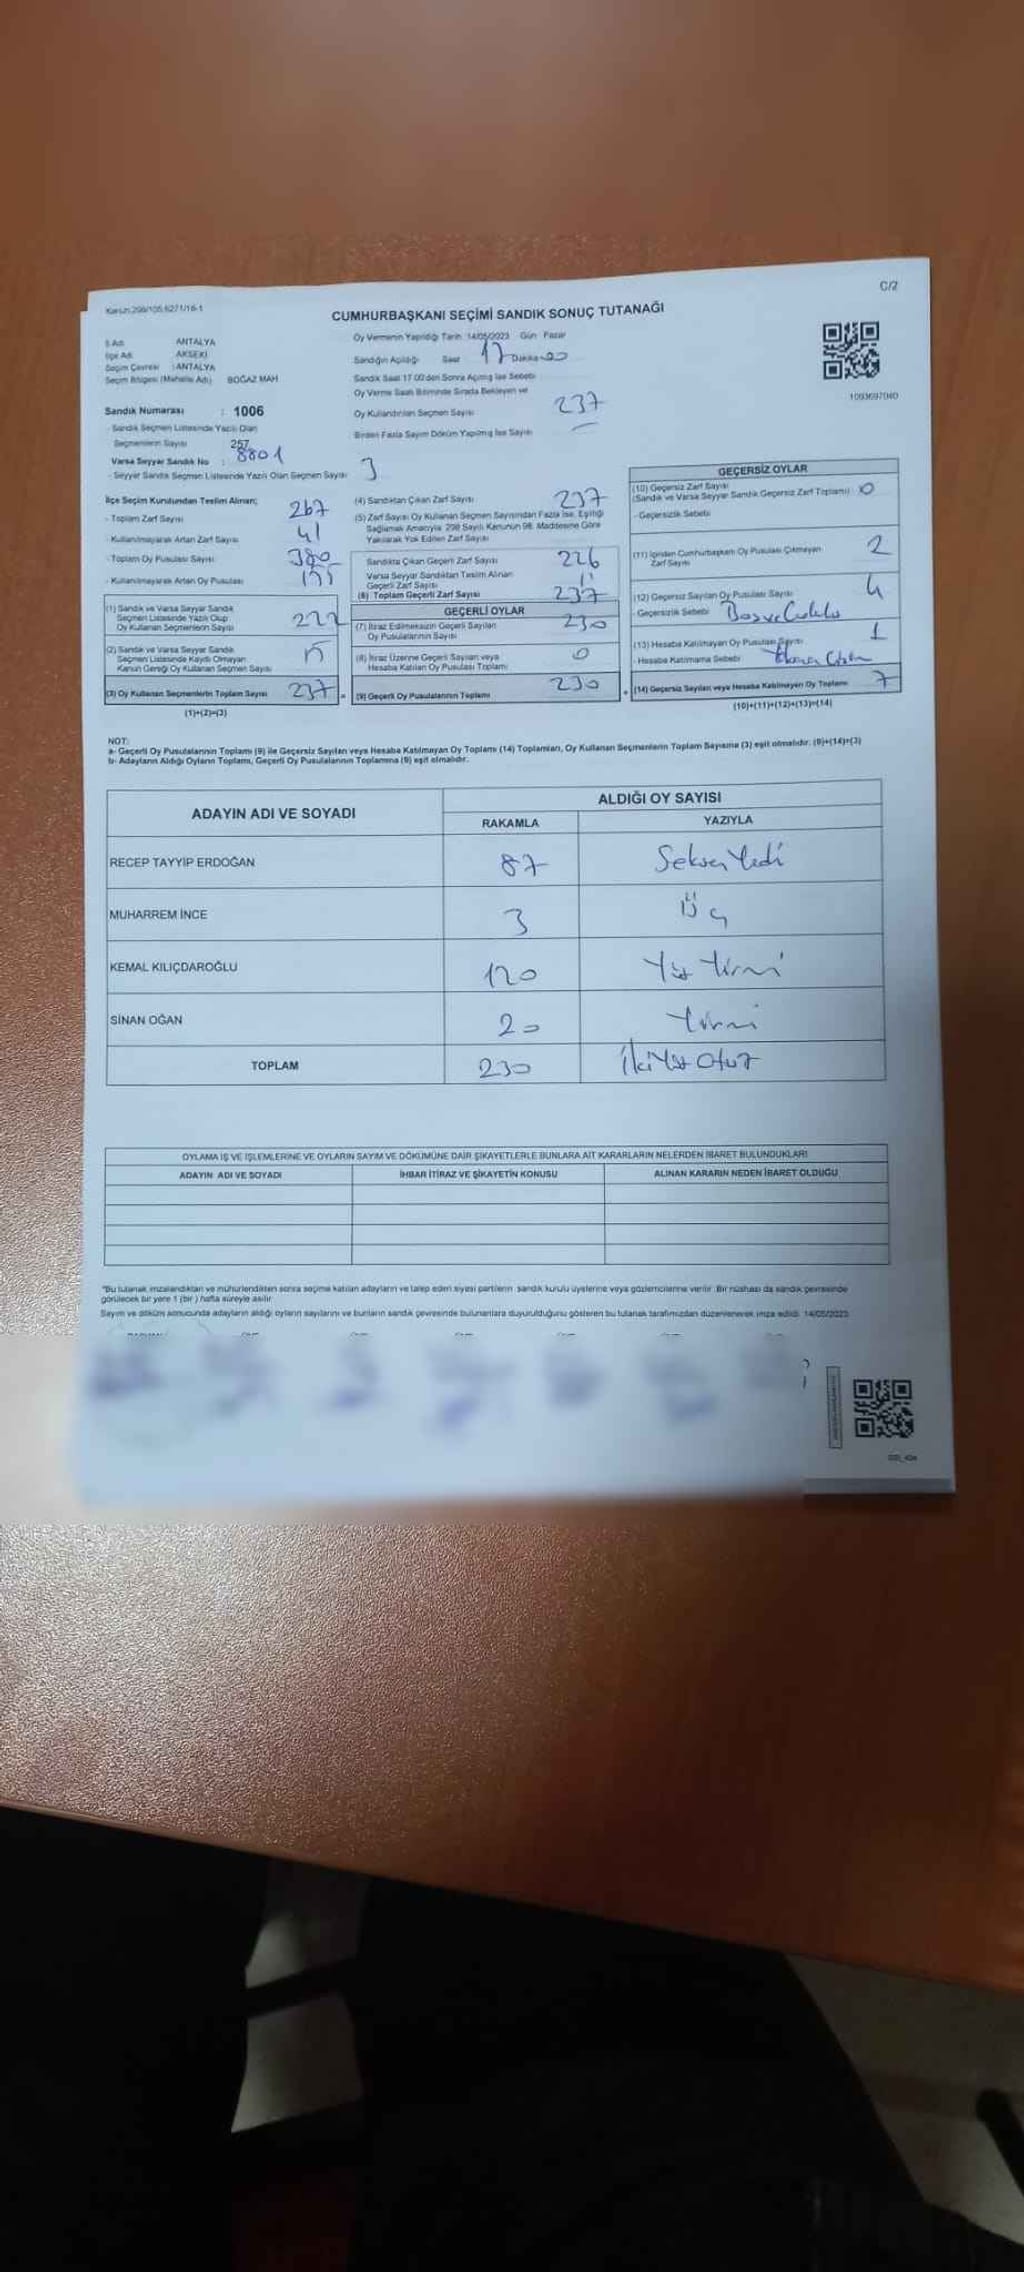 C/2
CUMHURBAŞKANI SEÇİMİ SANDIK SONUÇ TUTANAĞI
İl Adı : ANTALYA
İlçe Adı : AKSEKİ
Seçim Çevresi : ANTALYA
Seçim Bölgesi (Mahalle Adı) BOĞAZ MAH
Sandık Numarası : 1006
- Sandık Seçmen Listesinde Yazılı Olan
Seçmenlerin Sayısı 257
Varsa Seyyar Sandık No : 8801
- Seyyar Sandık Seçmen Listesinde Yazılı Olan Seçmen Sayısı 3
Oy Vermenin Yapıldığı Tarih 14/05/2023 Gün Pazar
Sandığın Açıldığı Saat 17 Dakika 00
Sandık Saat 17.00'den Sonra Açılmış İse Sebebi
Oy Verme Saati Bitiminde Sırada Bekleyen ve
Oy Kullandırılan Seçmen Sayısı 237
Birden Fazla Sayım Döküm Yapılmış İse Sayısı —
1093697040
İlçe Seçim Kurulundan Teslim Alınan;
- Toplam Zarf Sayısı 267
- Kullanılmayarak Artan Zarf Sayısı 41
- Toplam Oy Pusulası Sayısı 380
- Kullanılmayarak Artan Oy Pusulası
(1) Sandık ve Varsa Seyyar Sandık
Seçmen Listesinde Yazılı Olup
Oy Kullanan Seçmenlerin Sayısı
(2) Sandık ve Varsa Seyyar Sandık
Seçmen Listesinde Kaydı Olmayan
Kanun Gereği Oy Kullanan Seçmen Sayısı
(3) Oy Kullanan Seçmenlerin Toplam Sayısı 237
(1)+(2)=(3)
(4) Sandıktan Çıkan Zarf Sayısı 237
(5) Zarf Sayısı Oy Kullanan Seçmen Sayısından Fazla İse, Eşitliği
Sağlamak Amacıyla 298 Sayılı Kanunun 98. Maddesine Göre
Yakılarak Yok Edilen Zarf Sayısı
Sandıkta Çıkan Geçerli Zarf Sayısı 226
Varsa Seyyar Sandıktan Teslim Alınan
Geçerli Zarf Sayısı 11
(6) Toplam Geçerli Zarf Sayısı 237
GEÇERLİ OYLAR
(7) İtiraz Edilmeksizin Geçerli Sayılan
Oy Pusulalarının Sayısı 230
(8) İtiraz Üzerine Geçerli Sayılan veya
Hesaba Katılan Oy Pusulası Toplamı 0
(9) Geçerli Oy Pusulalarının Toplamı 230
GEÇERSİZ OYLAR
(10) Geçersiz Zarf Sayısı
(Sandık ve Varsa Seyyar Sandık Geçersiz Zarf Toplamı) 0
- Geçersizlik Sebebi
(11) İçinden Cumhurbaşkanı Oy Pusulası Çıkmayan
Zarf Sayısı 2
(12) Geçersiz Sayılan Oy Pusulası Sayısı 4
- Geçersizlik Sebebi
(13) Hesaba Katılmayan Oy Pusulası Sayısı 1
- Hesaba Katılmama Sebebi
(14) Geçersiz Sayılan veya Hesaba Katılmayan Oy Toplamı 7
(10)+(11)+(12)+(13)=(14)
NOT:
a- Geçerli Oy Pusulalarının Toplamı (9) ile Geçersiz Sayılan veya Hesaba Katılmayan Oy Toplamı (14) Toplamları, Oy Kullanan Seçmenlerin Toplam Sayısına (3) eşit olmalıdır. (9)+(14)=(3)
b- Adayların Aldığı Oyların Toplamı, Geçerli Oy Pusulalarının Toplamına (9) eşit olmalıdır.
ADAYIN ADI VE SOYADI ALDIĞI OY SAYISI
RAKAMLA YAZIYLA
RECEP TAYYİP ERDOĞAN 87 Seksen Yedi
MUHARREM İNCE 3 Üç
KEMAL KILIÇDAROĞLU 120 Yüz Yirmi
SİNAN OĞAN 20 Yirmi
TOPLAM 230 İki Yüz Otuz
OYLAMA İŞ VE İŞLEMLERİNE VE OYLARIN SAYIM VE DÖKÜMÜNE DAİR ŞİKAYETLERLE BUNLARA AİT KARARLARIN NELERDEN İBARET BULUNDUKLARI
ADAYIN ADI VE SOYADI İHBAR İTİRAZ VE ŞİKAYETİN KONUSU ALINAN KARARIN NEDEN İBARET OLDUĞU
"Bu tutanak imzalandıktan ve mühürlendikten sonra seçime katılan adayların ve talep eden siyasi partilerin sandık kurulu üyelerine veya gözlemcilerine verilir. Bir nüshası da sandık çevresinde
görülecek bir yere 1 (bir) hafta süreyle asılır.
Sayım ve döküm sonucunda adayların aldığı oyların sayılarını ve bunların sandık çevresinde bulunanlara duyurulduğunu gösteren bu tutanak tarafımızdan düzenlenerek imza edildi. 14/05/2023